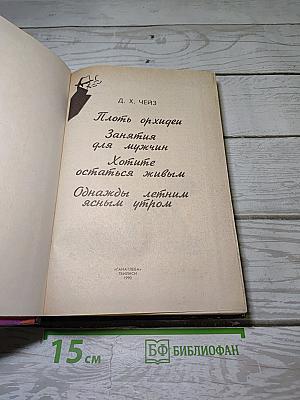 Д. Х. ЧЕЙЗ
Плоть орхидеи
Занятия
для мужчин
Хотите
остаться живым
Однажды летним
ясным утром
«ГАНАТЛЕБА»
ТБИЛИСИ
1990
15 см
БФ БИБЛИОФАН